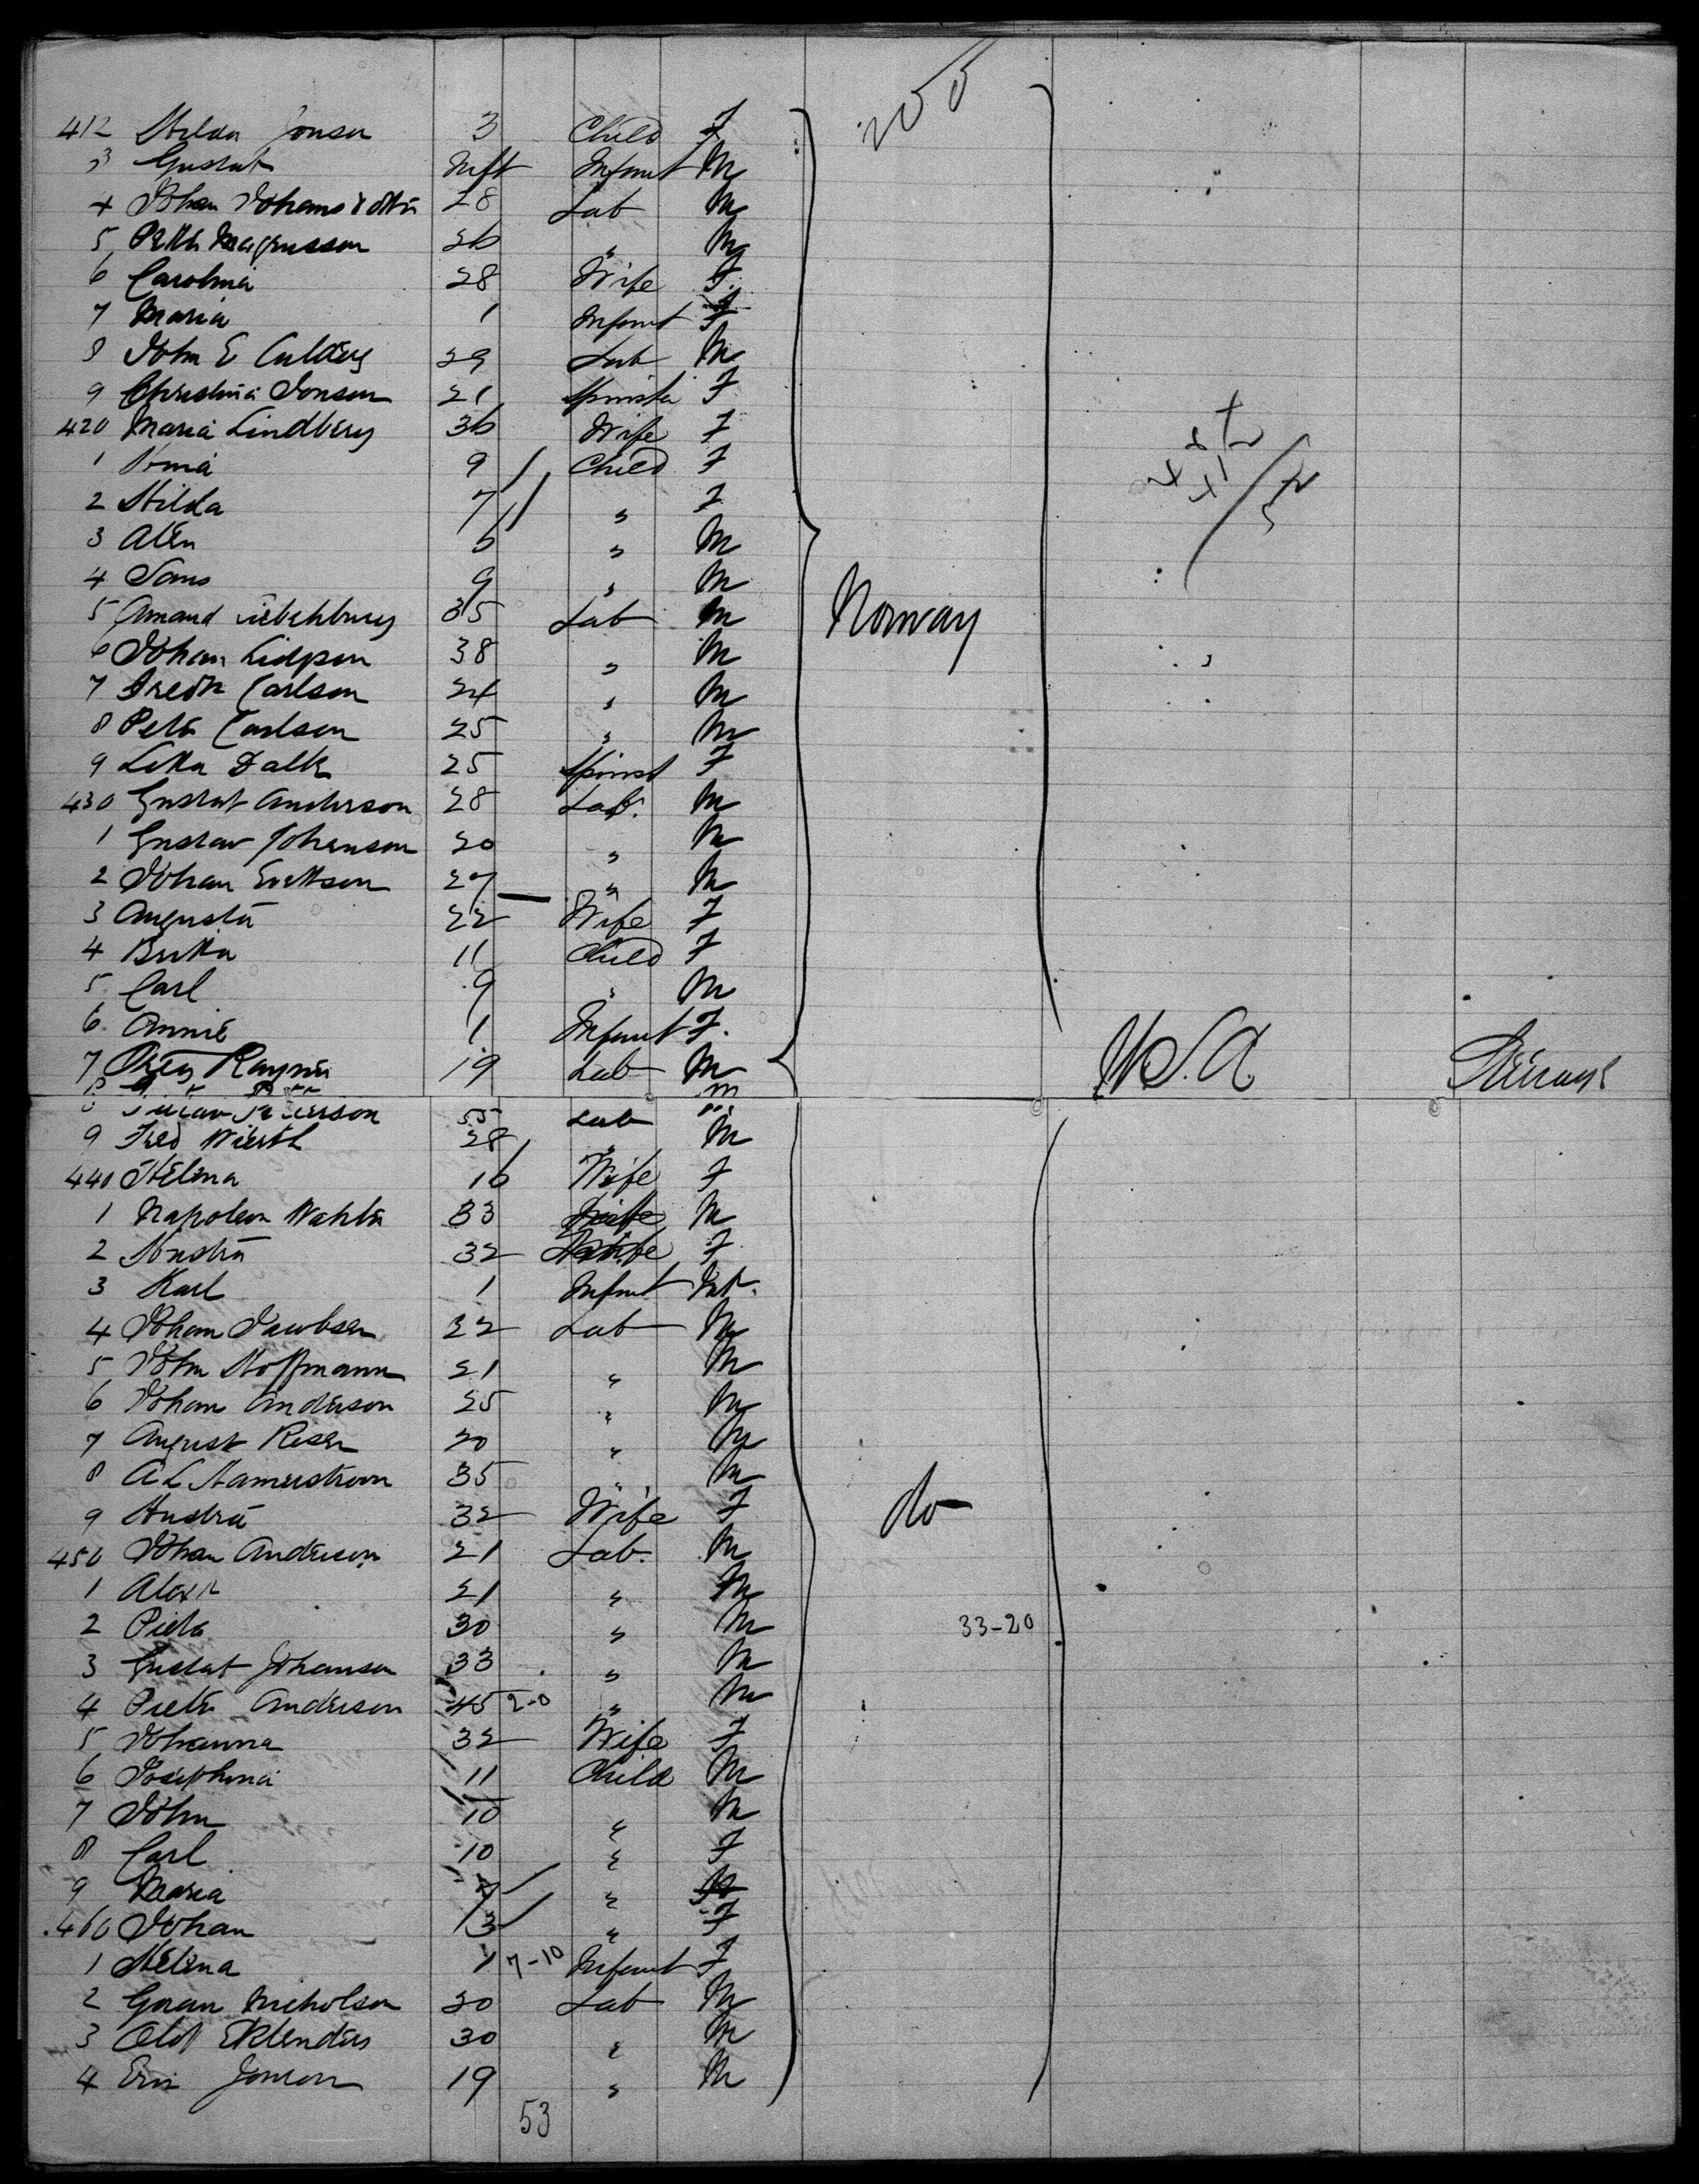 200
412 Hilda Jonson 3 Child F
3 Gustaf Inft Infant M
4 Johan Johans 28 Lab M
5 Peter Magnusson 26 " M
6 Carolina 28 Wife F.
7 Maria 1 Infant F
8 John E 29 Lab M
9 Christina Jonson 21 Spinster F
420 Maria Lindberg 36 Wife F
1 9 Child F
2 Hilda 7 " F
3 6 " M
4 9 " M
5 Amand 35 Lab M
Norway
6 Johan 38 " M
7 Fredk Carlson 24 " M
8 Peter Carlson 25 " M
9 25 Spinst F
430 Gustaf Anderson 28 Lab. M
1 Gustav Johanson 20 " M
2 Johan 27 " M
3 Augusta 22 Wife F
4 11 Child F
5 Carl 9 " M
6 Annie 1 Infant F.
7 19 Lab M
U.S.A. Steerage
Peterson 55 Lab M
9 Fred 28 " M
440 Helena 16 Wife F
1 Napoleon 33 M
2 32 F
3 Karl 1 Infant
4 Johan Jacobsen 22 Lab M
5 John Hoffmann 21 " M
6 Johan Anderson 25 " M
7 August 20 " M
8 A L Hamerstrom 35 " M
9 32 Wife F
do
450 Johan Anderson 21 Lab. M
1 Alexr 21 " M
2 Pieter 30 " M
33-20
3 Gustaf Johanson 33 " M
4 Pieter Anderson 45 2-0 " M
5 Johanna 32 Wife F
6 Josephina 11 Child M
7 John 10 " M
8 Carl 10 " F
9 Maria 7 "
460 Johan 3 " F
1 Helena 1 7-10 Infant F
2 Goran Nicholson 20 Lab M
3 Olof 30 " M
4 Eric Jonson 19 " M
53